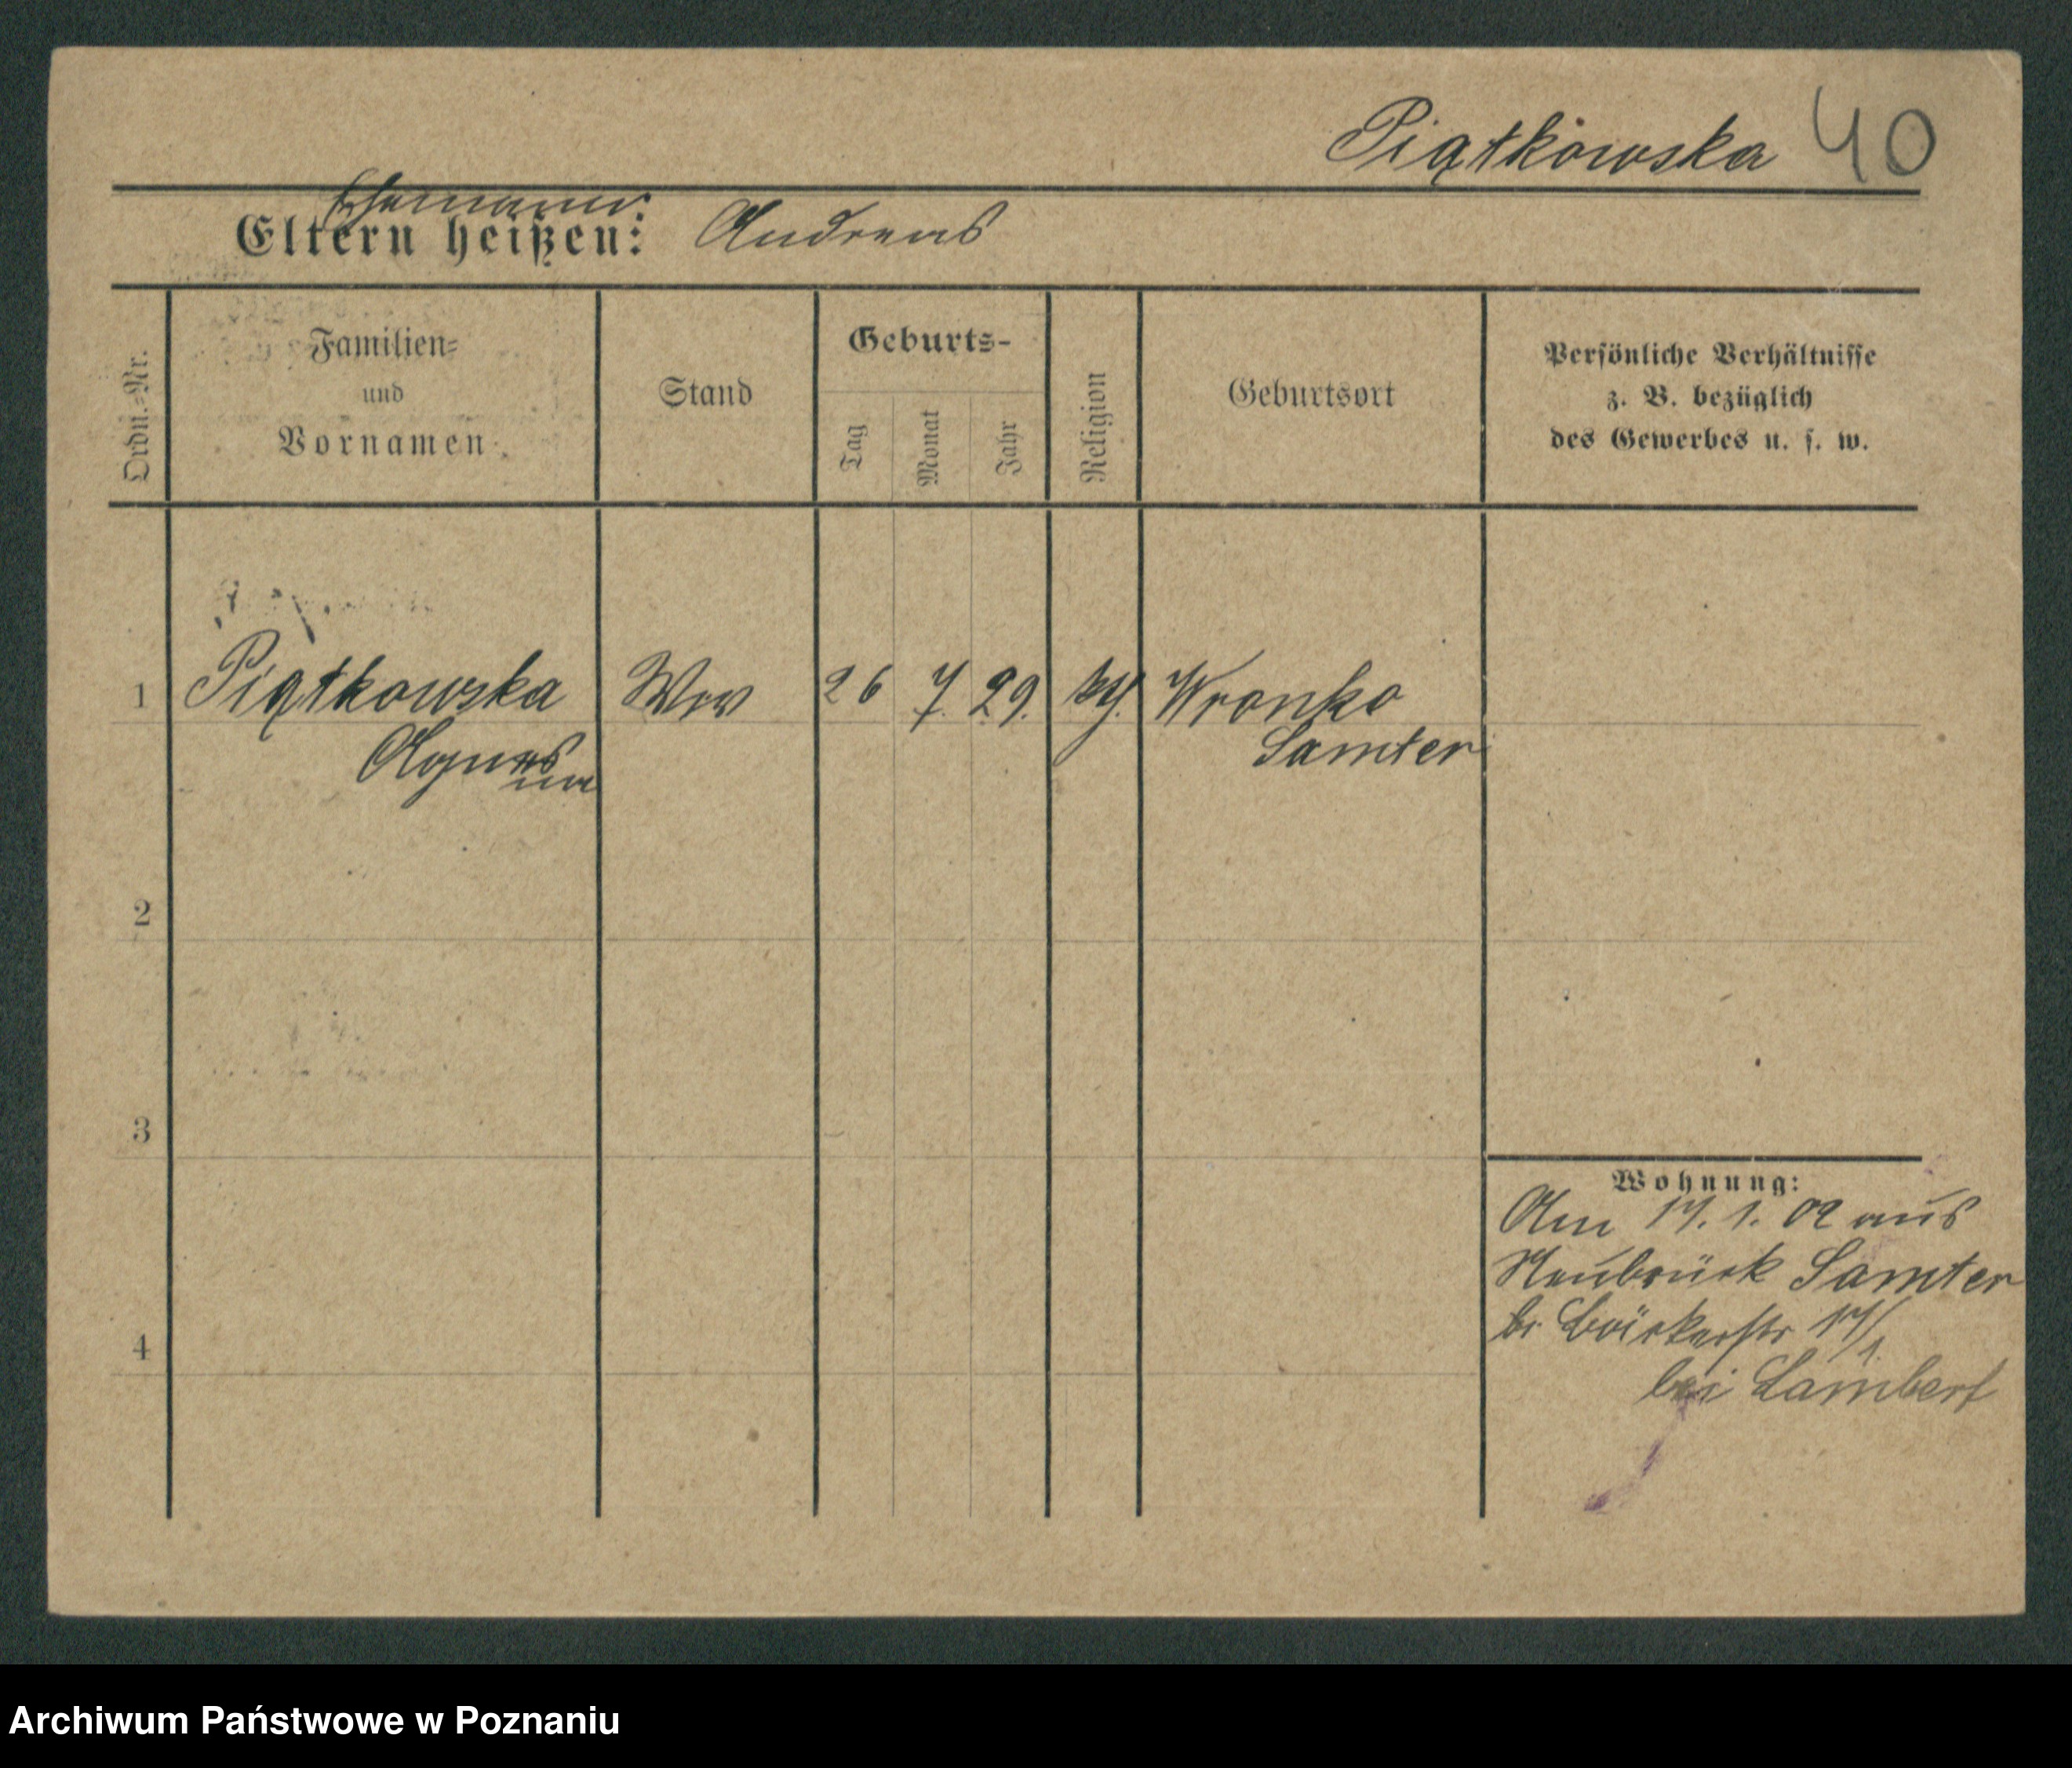 Piątkowska 40
Ehemann:
Eltern heißen: Andreas
Ordn.-Nr.
Familien-
und
Vornamen
Stand
Geburts-
Tag
Monat
Jahr
Religion
Geburtsort
Persönliche Verhältnisse
z. B. bezüglich
des Gewerbes u. s. w.
1 Piątkowska Wwe 26 7. 29. kth. Wronke
Agnes Samter
2
3
4
Wohnung:
Am 17. 1. 02 aus
Neubrück Samter
17/1.
bei Lambert
Archiwum Państwowe w Poznaniu